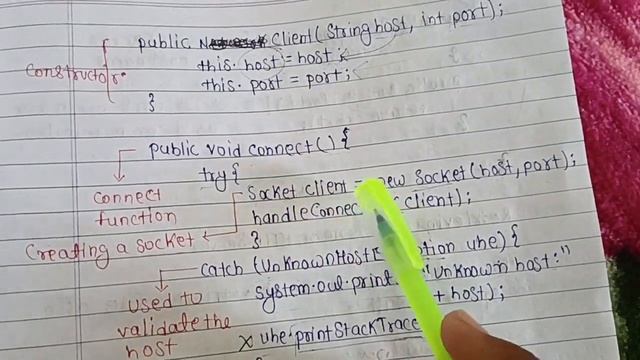 public Client(String host, int port);
this. host = host;
Constructor. this. port = port;
}
public void connect() {
try {
connect function
Socket client = new Socket(host, port);
Creating a socket
client);
}
catch (UnknownHost uhe) {
used to validate the host
System.out.print "Unknown host:"
+ host);
x uhe.printStackTrace